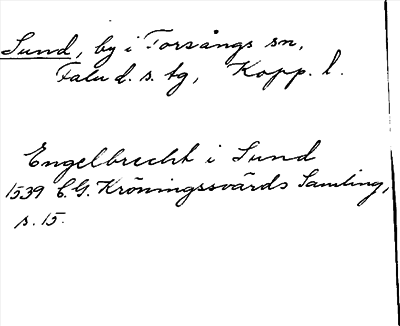 Sund, by i Torsångs sn,
Falu d. s. tg, Kopp. l.
Engelbrecht i Sund
1539 C. G. Kröningssvärds Samling,
s. 15.